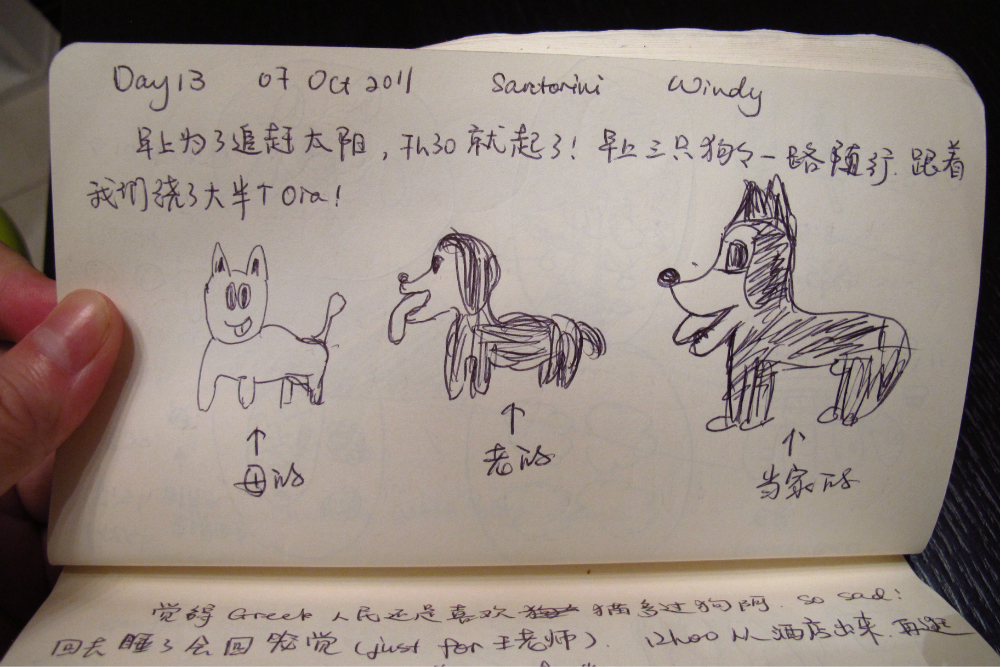 Day 13 07 Oct 2011 Santorini Windy
早上为了追赶太阳，7h30就起了！早上三只狗々一路随行.跟着
我们绕了大半个Oia！
母的
老的
当家的
觉得 Greek 人民还是喜欢 猫多过狗阿. so sad!
回去睡了会回笼觉 (just for 王老师). 12h00 从酒店出来.再逛